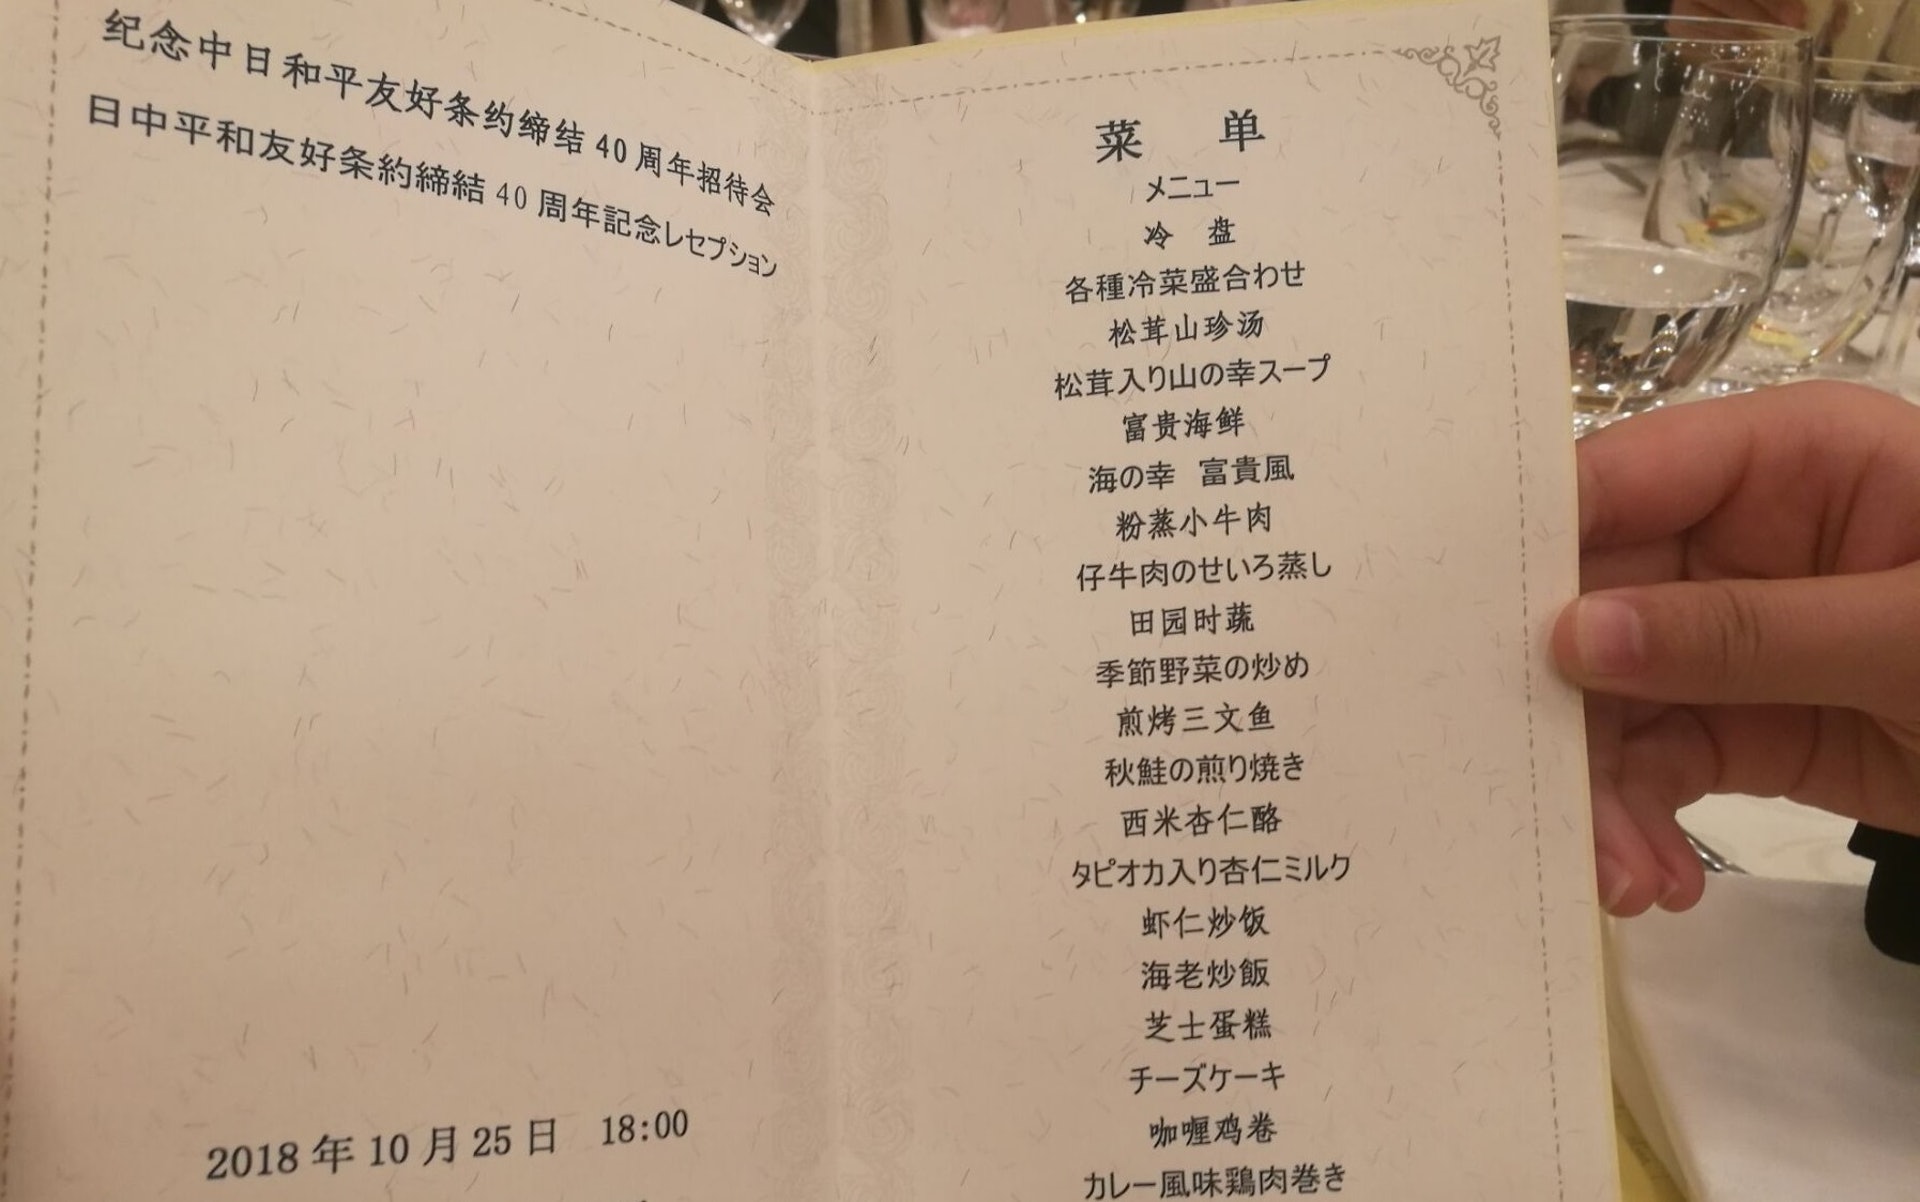 纪念中日和平友好条约缔结 40 周年招待会
日中平和友好条約締結 40 周年記念レセプション
2018 年 10 月 25 日 18:00
菜 单
メニュー
冷 盘
各種冷菜盛合わせ
松茸山珍汤
松茸入り山の幸スープ
富贵海鲜
海の幸 富貴風
粉蒸小牛肉
仔牛肉のせいろ蒸し
田园时蔬
季節野菜の炒め
煎烤三文鱼
秋鮭の煎り焼き
西米杏仁酪
タピオカ入り杏仁ミルク
虾仁炒饭
海老炒飯
芝士蛋糕
チーズケーキ
咖喱鸡卷
カレー風味鶏肉巻き